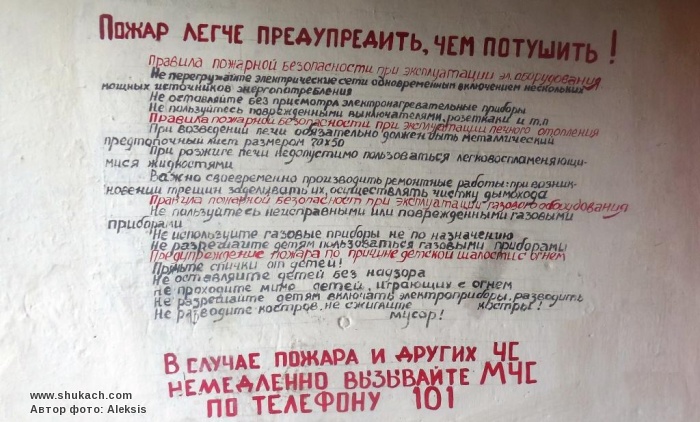 Пожар легче предупредить, чем потушить!
Правила пожарной безопасности при эксплуатации эл. оборудования
Не перегружайте электрические сети одновременным включением нескольких
мощных источников энергопотребления
Не оставляйте без присмотра электронагревательные приборы
Не пользуйтесь поврежденными выключателями, розетками и т.п
Правила пожарной безопасности при эксплуатации печного отопления
При возведении печи обязательно должен быть металлический
предтопочный лист размером 70х50
При розжиге печи недопустимо пользоваться легковоспламеняющи-
мися жидкостями
Важно своевременно производить ремонтные работы: при возник-
новении трещин заделывать их, осуществлять чистку дымохода
Правила пожарной безопасност при эксплуатации газового оборудования
Не пользуйтесь неисправными или поврежденными газовыми
приборами
Не используйте газовые приборы не по назначению
Не разрешайте детям пользоваться газовыми приборами
Предупреждение пожара по причине детской шалости с огнем
Прячьте спички от детей!
Не оставляйте детей без надзора
Не проходите мимо детей, играющих с огнем
Не разрешайте детям включать электроприборы, разводить
костры!
Не разводите костров, не сжигайте
мусор!
В случае пожара и других ЧС
немедленно вызывайте МЧС
по телефону 101
www.shukach.com
Автор фото: Aleksis